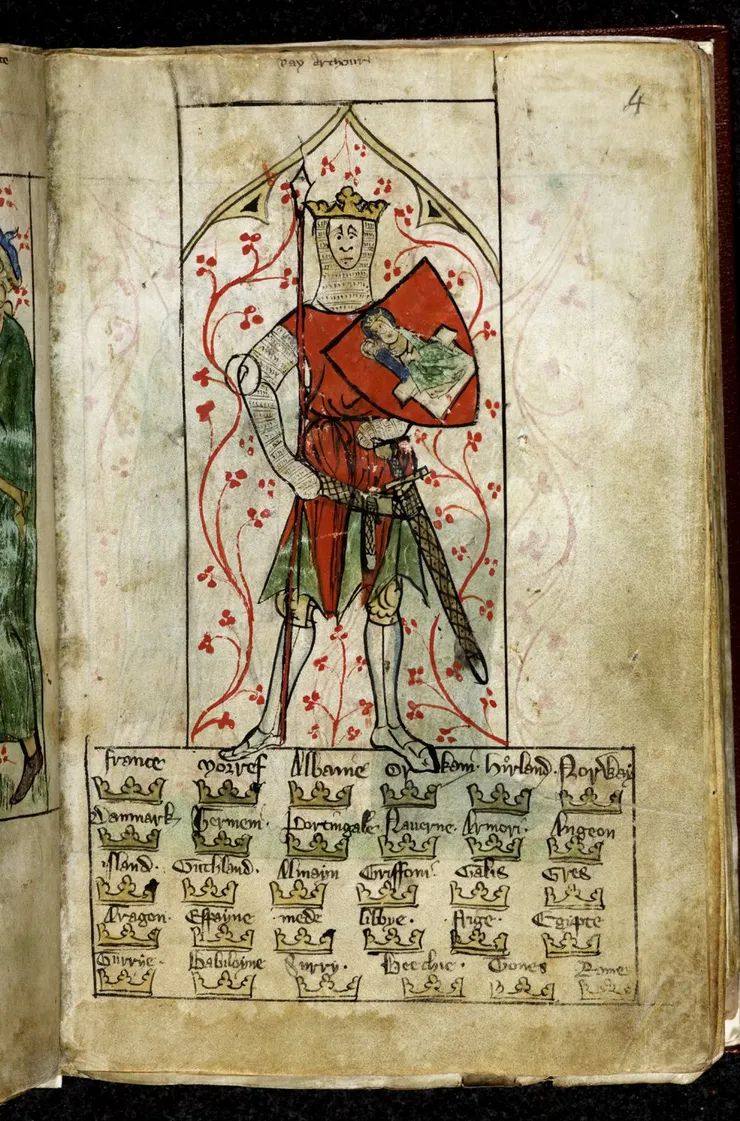 Ray Arthour
4
france Norref Albanie Orkani hirland Norway
Danmark Germeni Portingale Nauerne Armori Angeon
Island Guthland Almain Griffoni Galis Gres
Aragon Espayne mede libbye Arge Egipte
Surrye Babiloyne Gones Rome